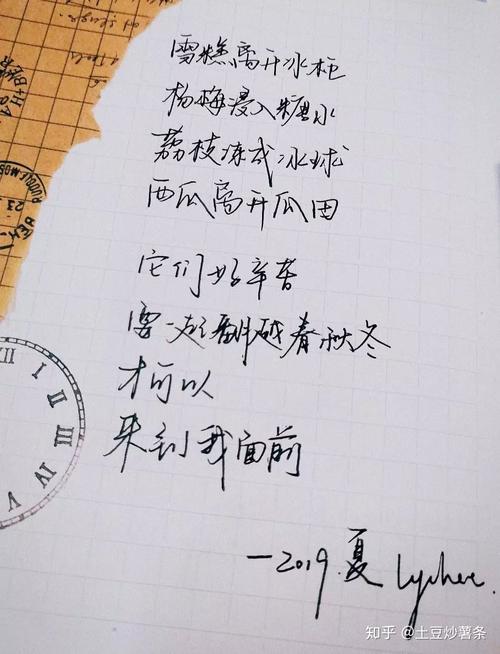 雪糕离开冰柜
杨梅浸入糖水
荔枝冻成冰球
西瓜离开瓜田
它们好辛苦
要一起翻越春秋冬
才可以
来到我面前
—2019.夏 Lychee.
知乎 @土豆炒薯条
I II III IV V